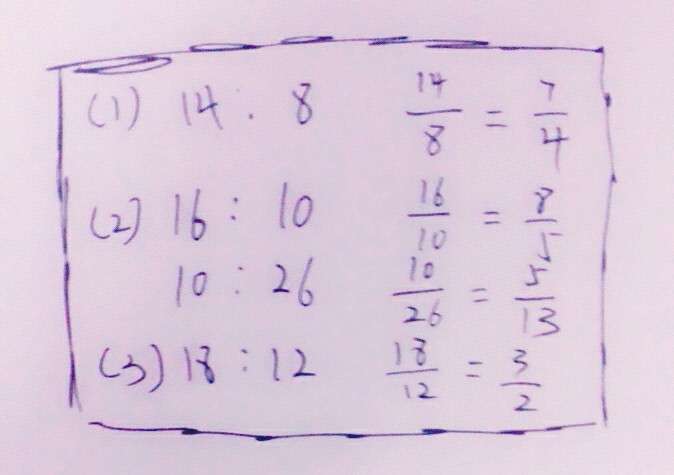 (1) 14 : 8 14/8 = 7/4
(2) 16 : 10 16/10 = 8/5
10 : 26 10/26 = 5/13
(3) 18 : 12 18/12 = 3/2